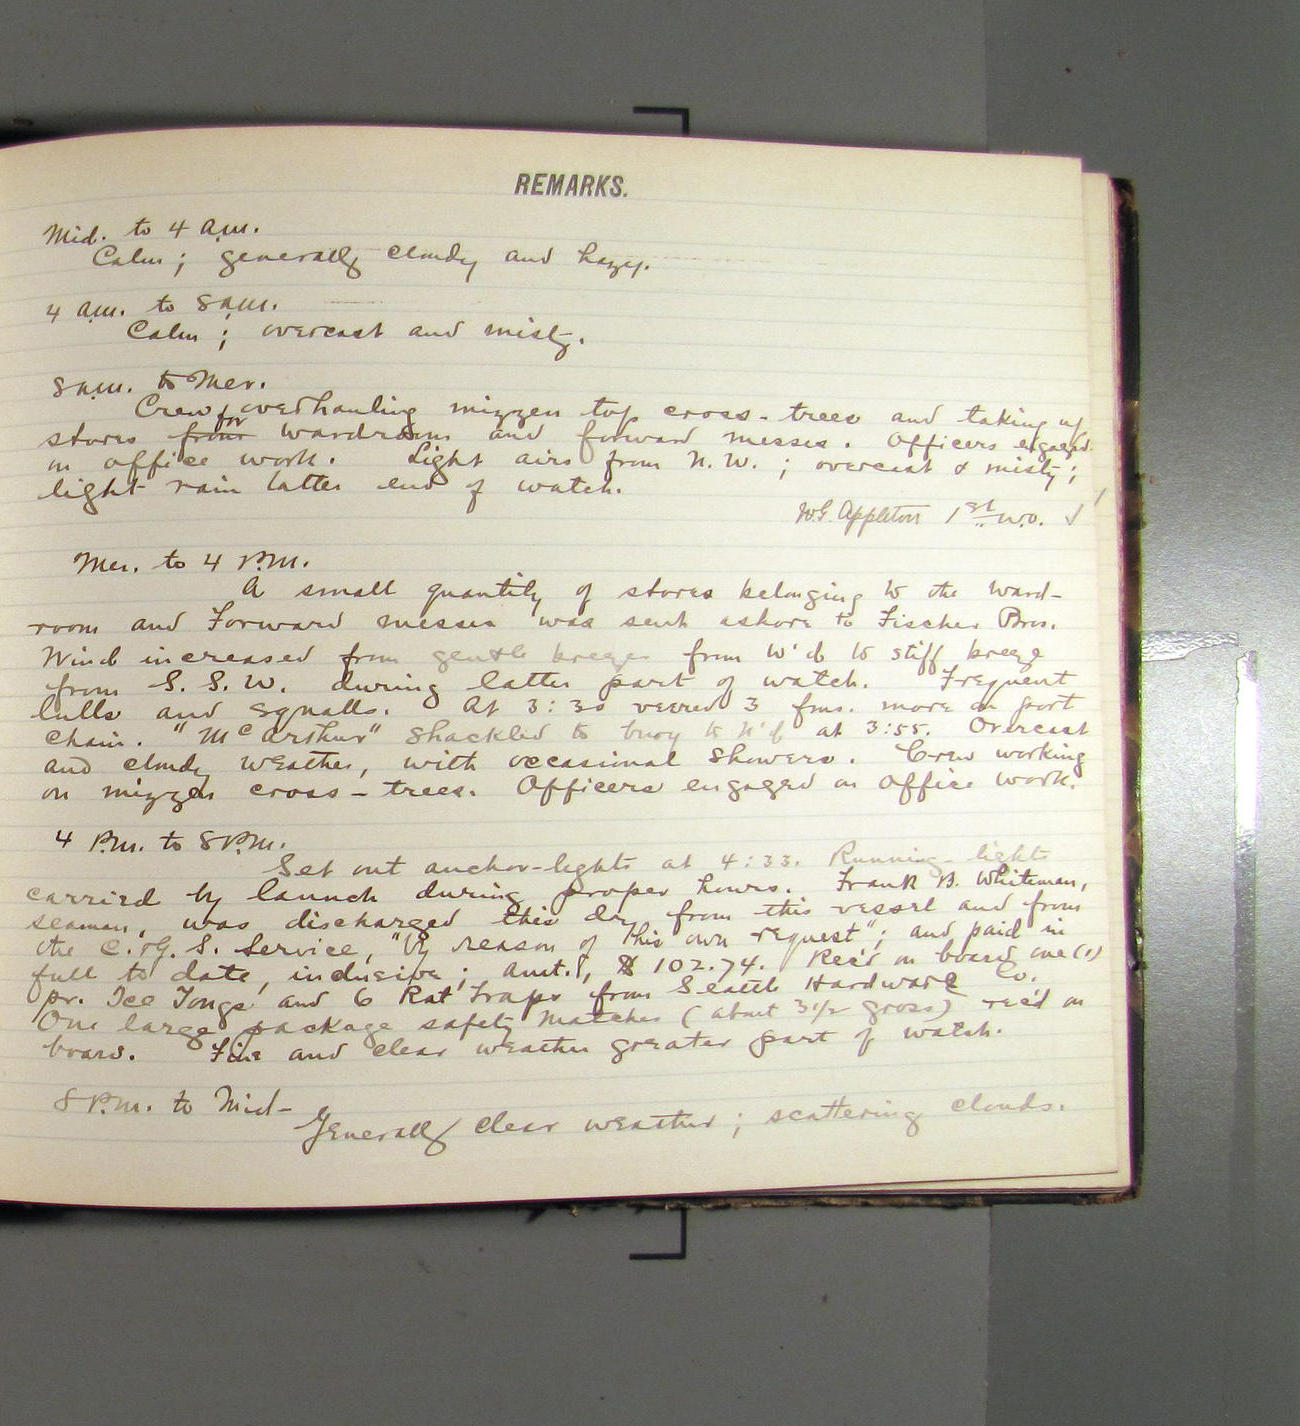 REMARKS.
Mid. to 4 a.m.
Calm; generally cloudy and hazy.
4 a.m. to 8 a.m.
Calm; overcast and misty.
8 a.m. to Mer.
Crew overhauling mizzen top cross-trees and taking up
stores from for wardroom and forward messes. Officers engaged
on office work. Light airs from N.W.; overcast & misty;
light rain latter end of watch.
W.G. Appleton 1st W.O. ✓
Mer. to 4 P.M.
A small quantity of stores belonging to the ward-
room and Forward messes was sent ashore to Fischer Bros.
Wind increased from gentle breeze from W'd to stiff breeze
from S. S. W. during latter part of watch. Frequent
lulls and squalls. At 3:30 veered 3 fms. more on port
chain. "McArthur" shackled to buoy to N'd at 3:55. Overcast
and cloudy weather, with occasional showers. Crew working
on mizzen cross-trees. Officers engaged on office work.
4 P.M. to 8 P.M.
Set out anchor-lights at 4:33. Running-lights
carried by launch during proper hours. Frank B. Whiteman,
seaman, was discharged this day from this vessel and from
the C. & G. S. Service, "by reason of his own request"; and paid in
full to date, inclusive; amt., $102.74. Rec'd on board one (1)
pr. Ice Tongs and 6 Rat Traps from Seattle Hardware Co.
One large package safety matches (about 3 1/2 gross) rec'd on
board. Fine and clear weather greater part of watch.
8 P.M. to Mid-
Generally clear weather; scattering clouds.